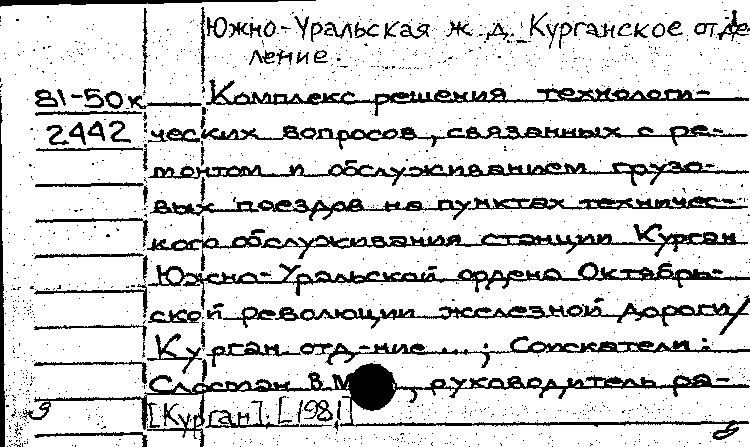 Южно-Уральская ж.д. Курганское отде
ление.
81-50к Комплекс решения технологи-
2442 ческих вопросов, связанных с ре-
монтом и обслуживанием грузо-
вых поездов на пунктах техничес-
кого обслуживания станции Курган
Южно-Уральской ордена Октябрь-
ской революции железной дороги/
Курган. отд-ние ...; Соискатели:
В.М , руководитель ра-
[Курган], [1981]